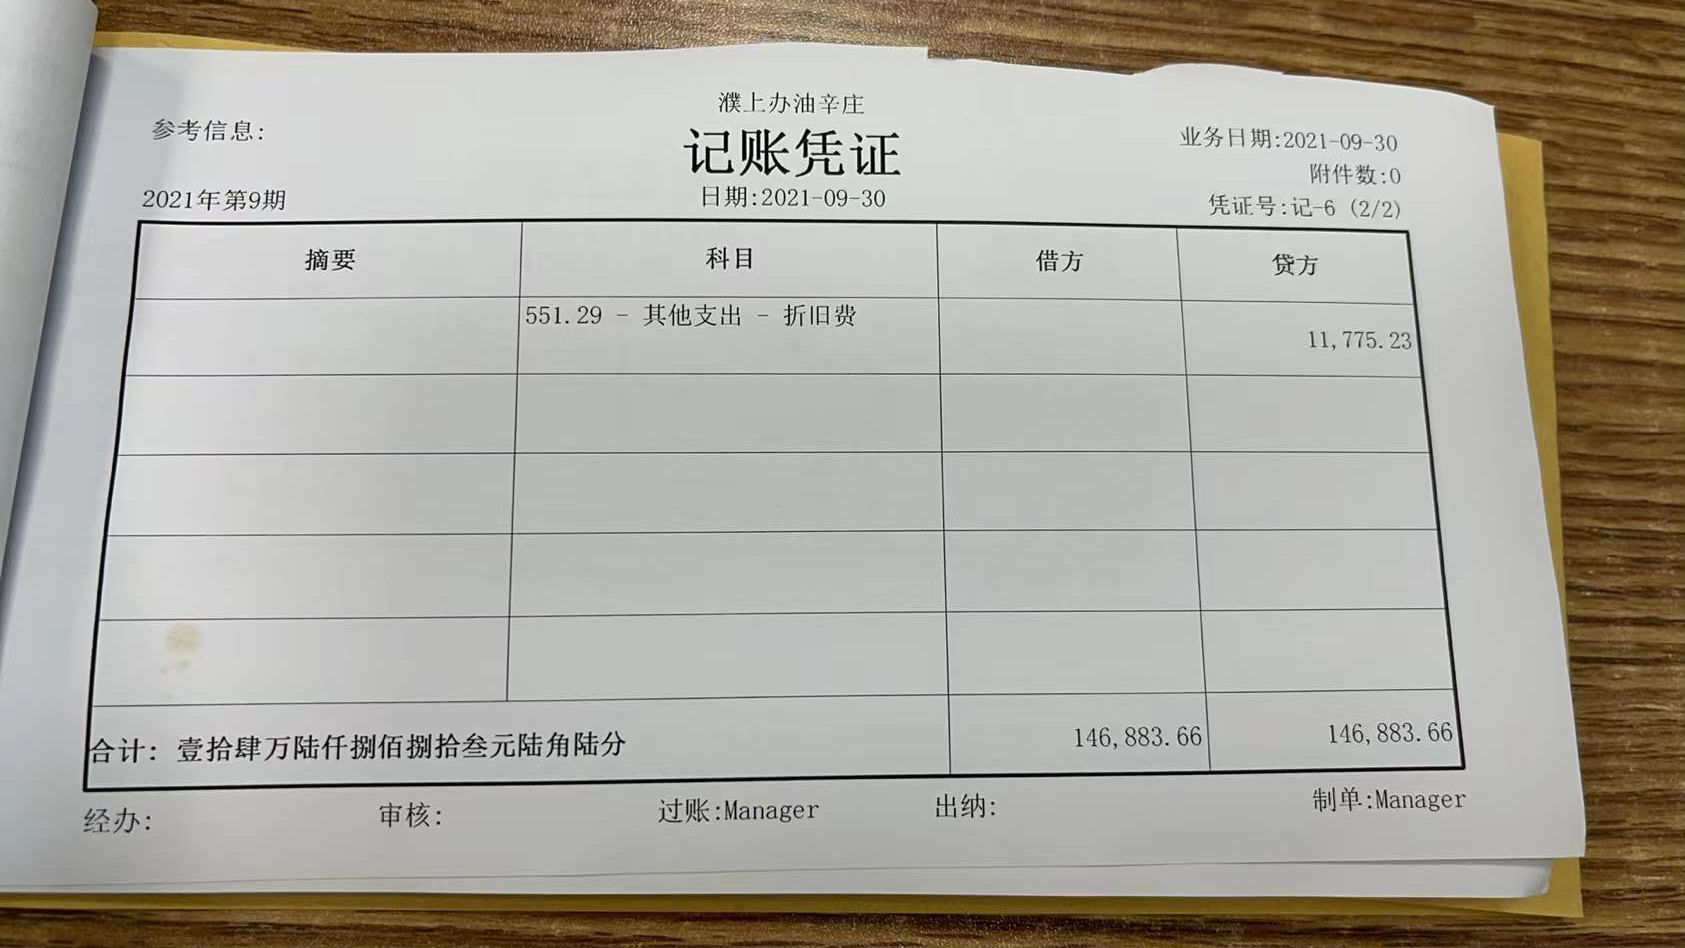 濮上办油辛庄
参考信息:
记账凭证
业务日期:2021-09-30
附件数:0
2021年第9期
日期:2021-09-30
凭证号:记-6 (2/2)
摘要 科目 借方 贷方
551.29 - 其他支出 - 折旧费 11,775.23
合计: 壹拾肆万陆仟捌佰捌拾叁元陆角陆分 146,883.66 146,883.66
经办: 审核: 过账:Manager 出纳: 制单:Manager